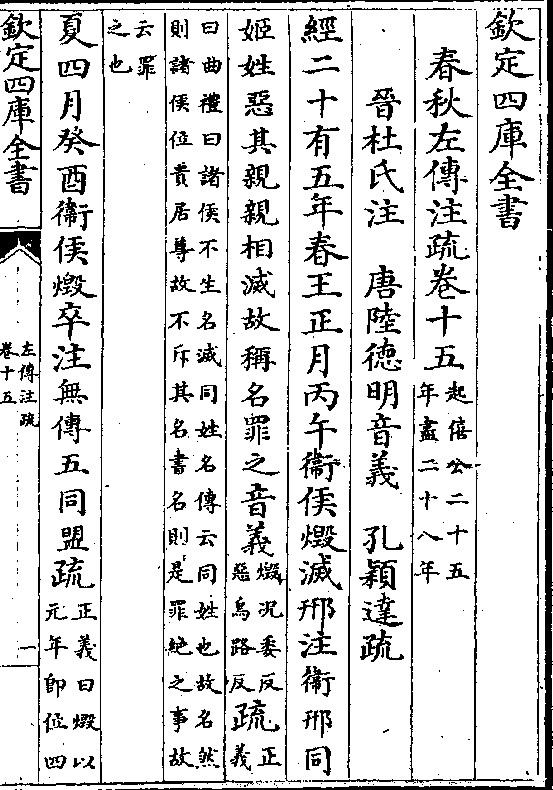 欽定四庫全書
春秋左傳注疏卷十五起僖公二十五
年盡二十八年
晉杜氏注　唐陸德明音義　孔穎達疏
經二十有五年春王正月丙午衛侯燬滅邢注衛邢同
姬姓惡其親親相滅故稱名罪之音義燬況委反
惡烏路反疏正
義
曰曲禮曰諸侯不生名滅同姓名傳云同姓也故名然
則諸侯位貴居尊故不斥其名書名則是罪絶之事故
云罪
之也
夏四月癸酉衛侯燬卒注無傳五同盟疏正義曰燬以
元年即位四
欽定四庫全書
左傳注疏
卷十五
一